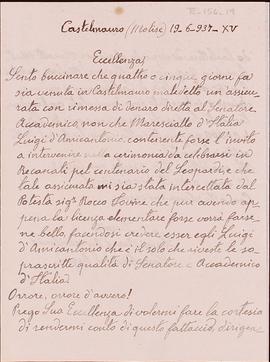 E-156-19
Castelmauro (Molise) 19-6-937-XV
Eccellenza,
Sento buccinare che quattro o cinque giorni fa
sia venuta in Castelmauro molisello un assicu-
rata con rimessa di denaro diretta al Senatore
Accademico, non che Maresciallo d'Italia
Luigi d'Amicantonio, contenente forse l'invito
a intervenire nella cerimonia da celebrarsi in
Recanati pel centenario del Leopardi e che
tale assicurata mi sia stata intercettata dal
Potestà sigr Rocco Iovine che pur avendo ap-
pena la licenza elementare forse vorrà farse-
ne bello, facendosi credere esser egli Luigi
di Amicantonio che è il solo che riveste le so-
prascritte qualità di Senatore e Accademico
d'Italia?
Orrore, orrore d'avvero!
Prego Sua Eccellenza di volermi fare la cortesia
di rendermi conto di questo fattaccio, dirigere